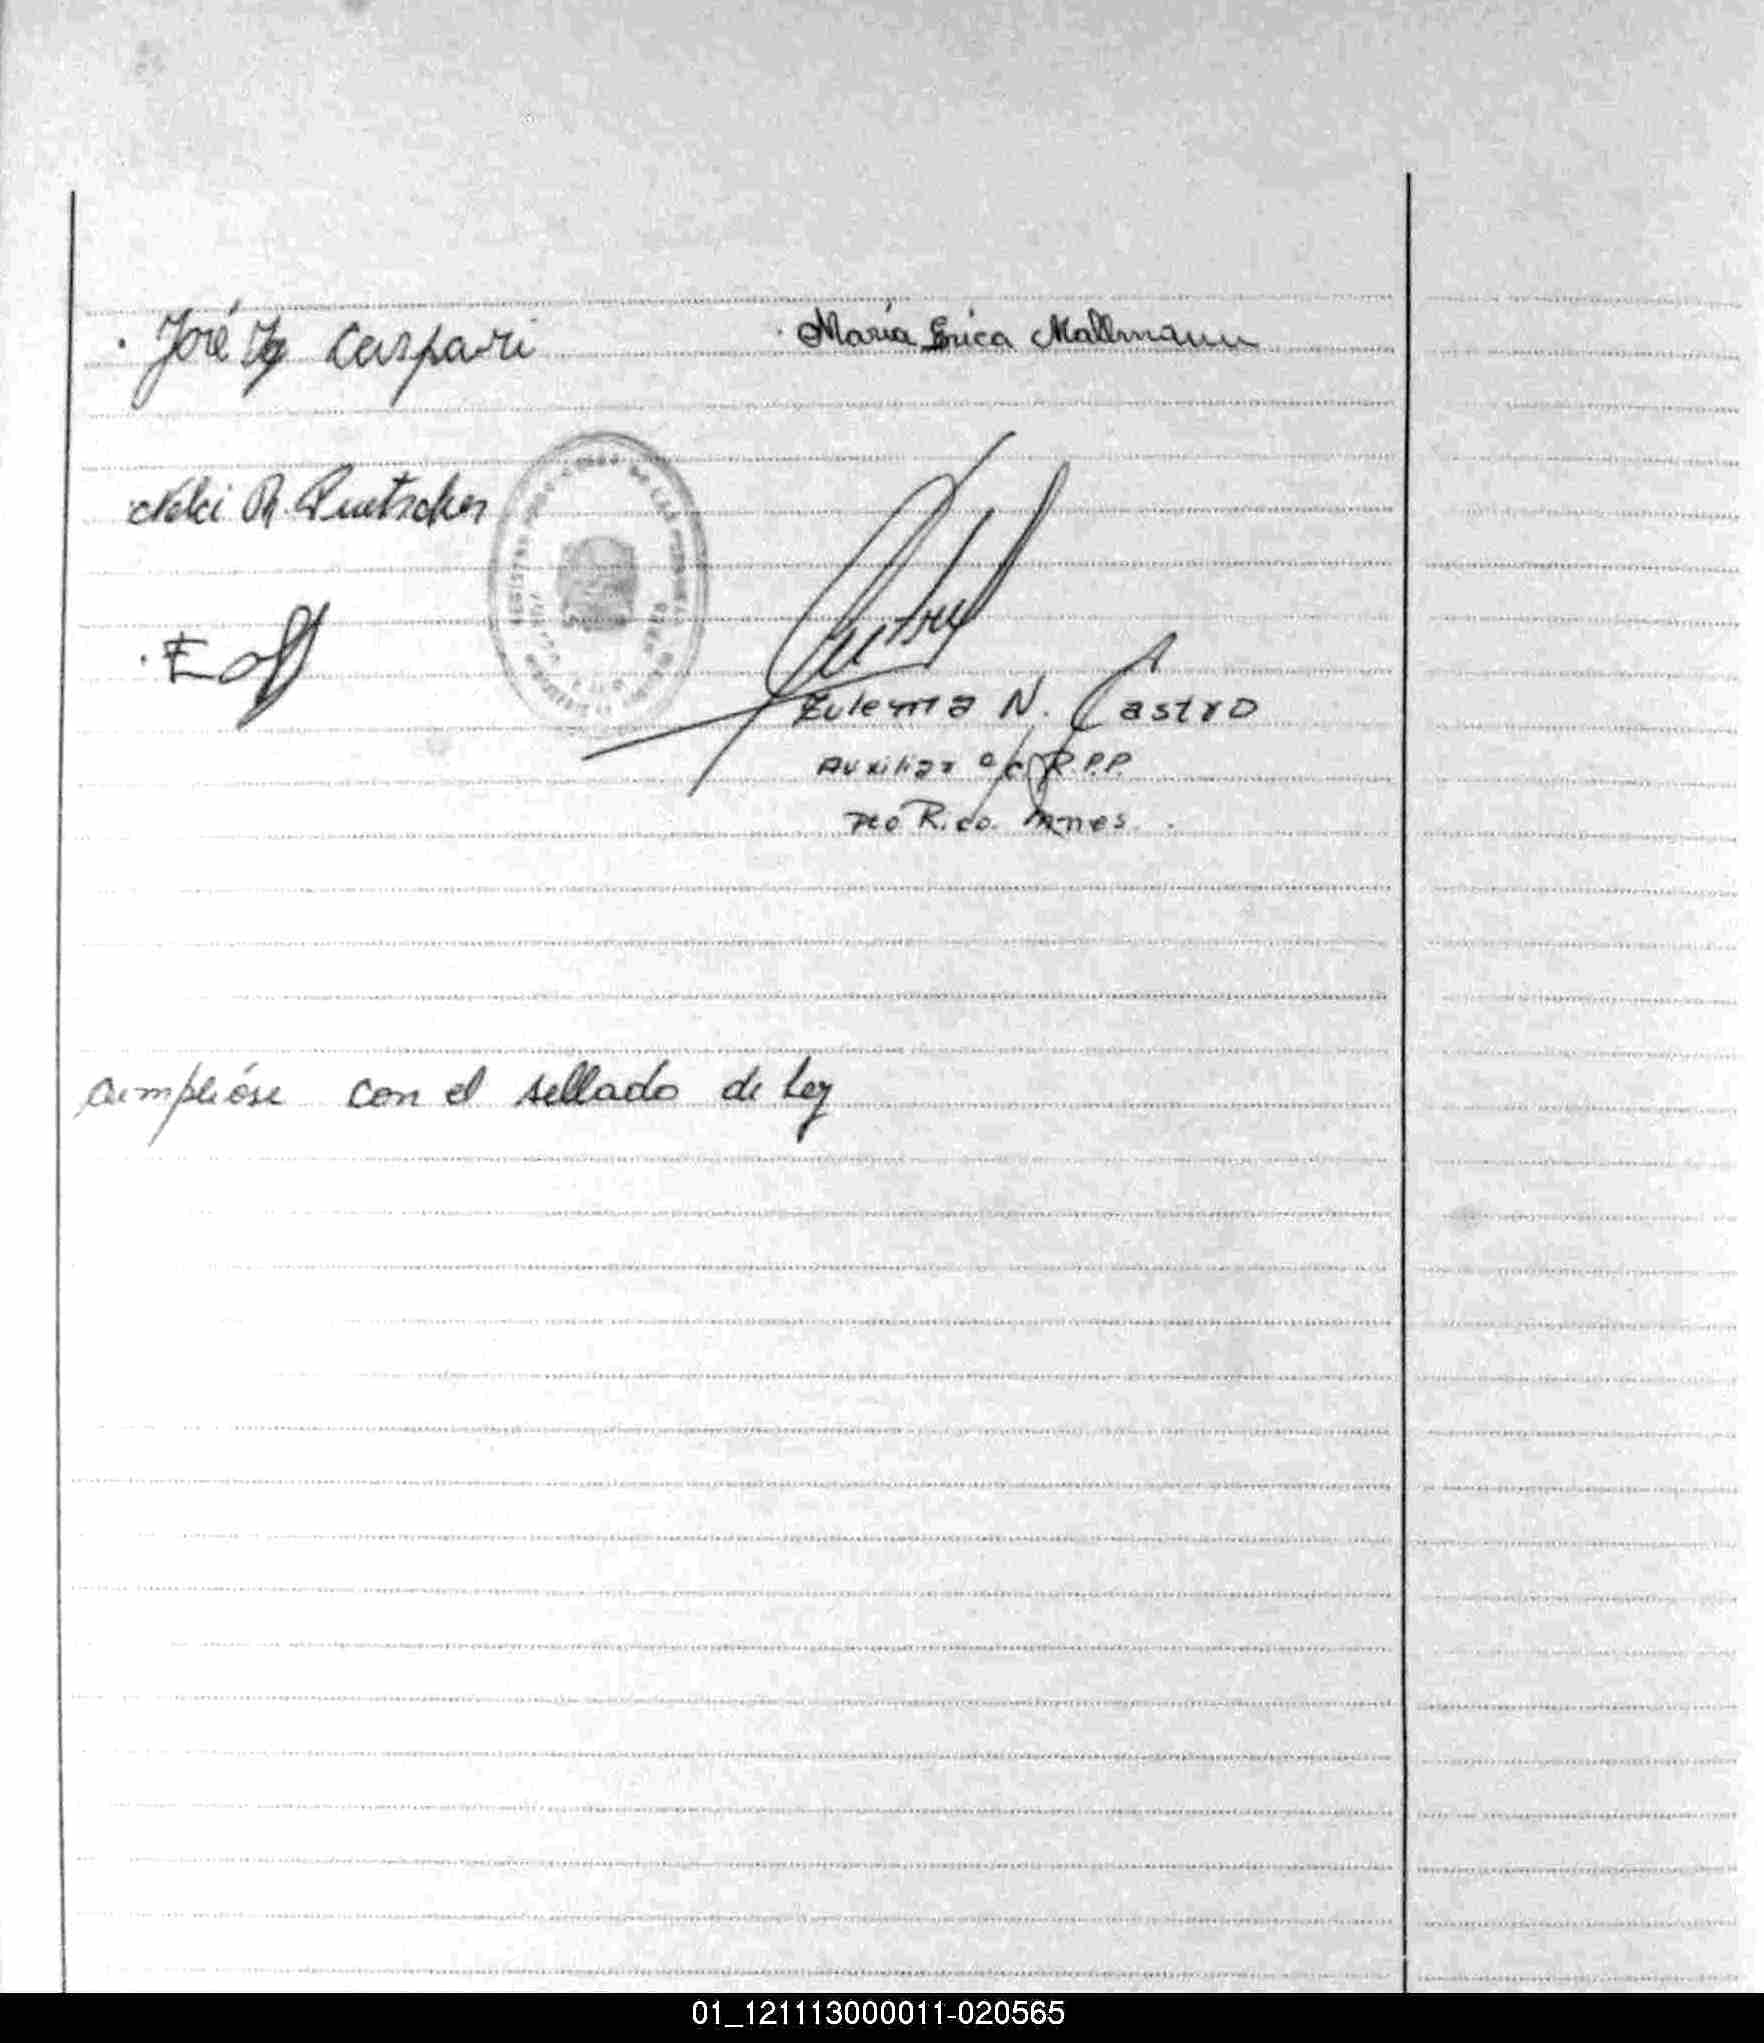 José Ig Caspari
María Erica Mallmann
Nelci R.
Zulema N. Castro
Auxiliar a/c R.P.P.
Pto Rico. Mnes.
cumplióse con el sellado de Ley
01_121113000011-020565